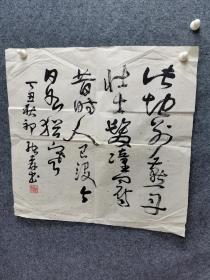 此地别燕丹
壮士髮衝冠
昔時人已没今
日水猶寒
丁丑秋初